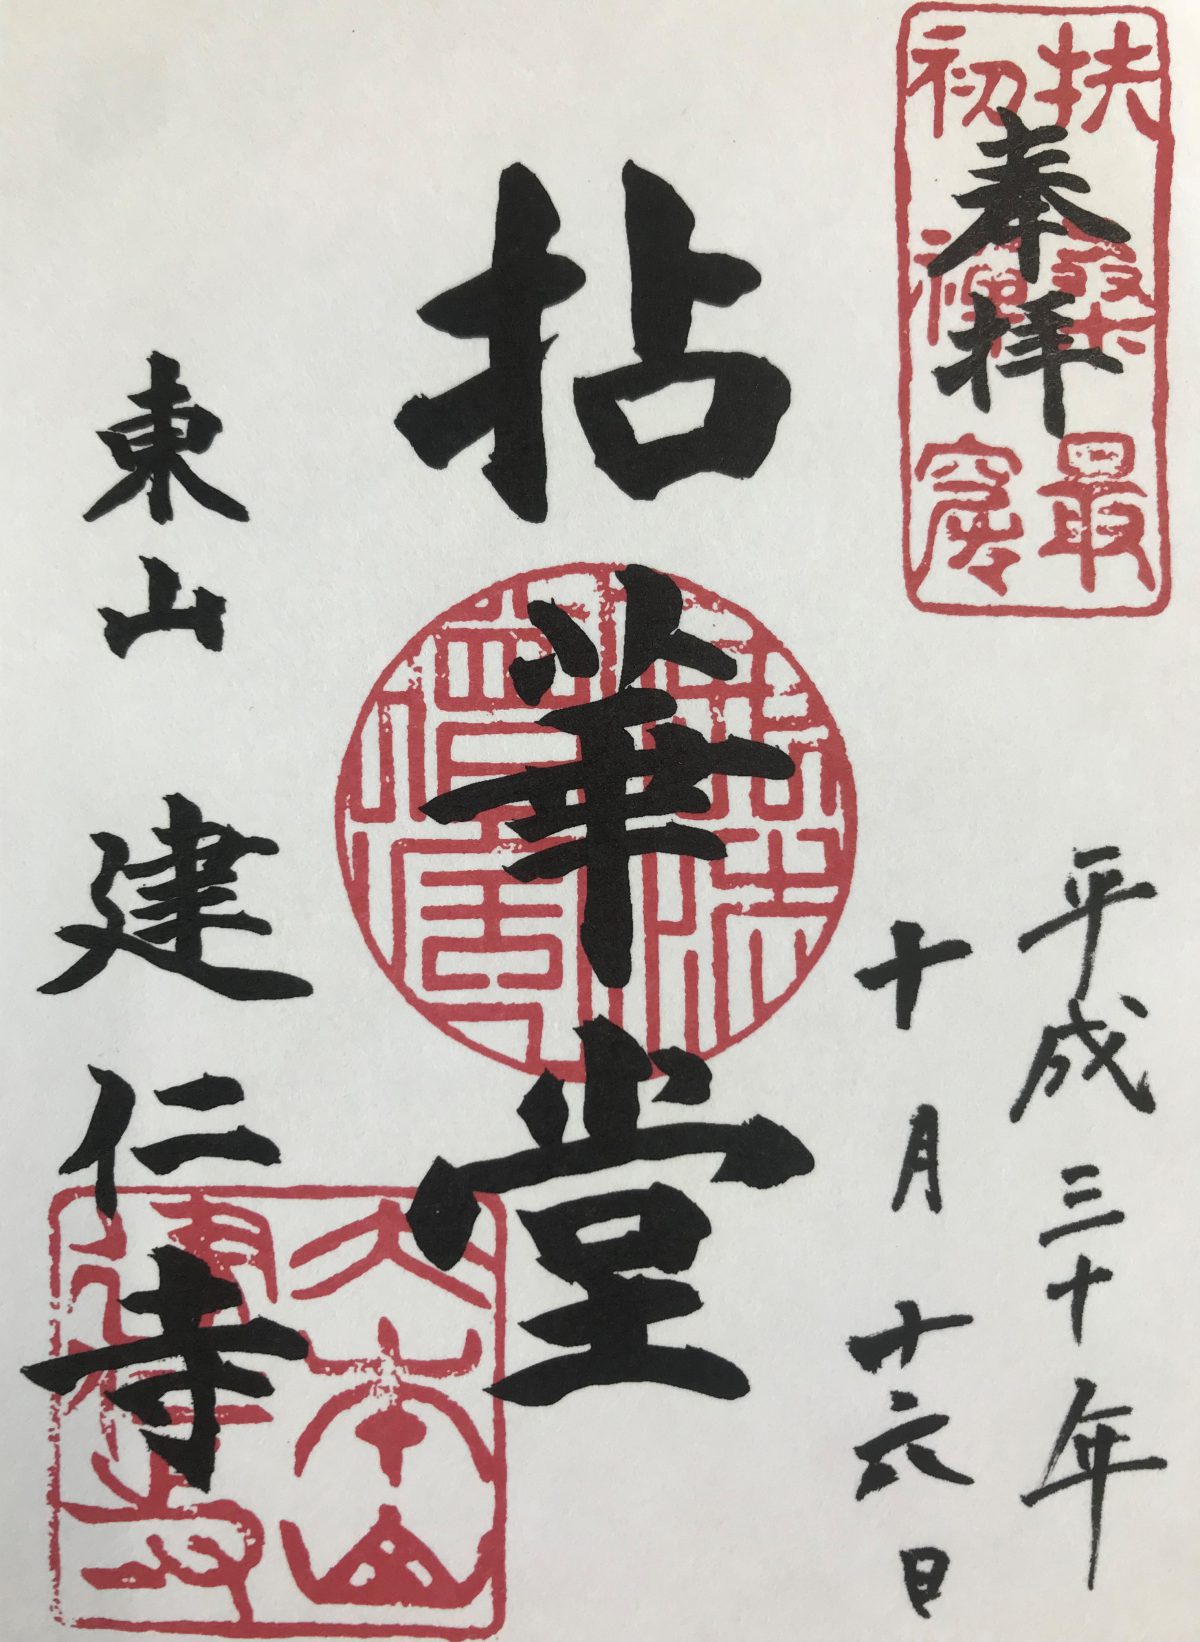 扶桑最
初禅窟
奉拝
平成三十年
十月十六日
拈華堂
東山 建仁寺
大本山
建仁寺